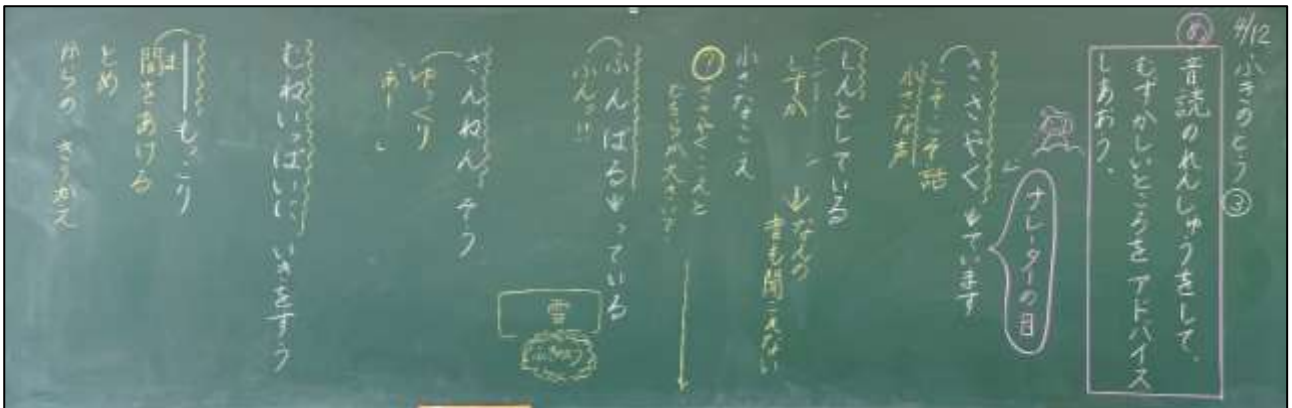 4/12 ふきのとう ③
め
音読のれんしゅうをして、
むずかしいところをアドバイス
しあおう。
ナレーターの目
ささやく↓ています
こそこそ話
小さな声
しんとしている
しずか
↓なんの
音も聞こえない
小さなこえ
?ささやくこえと
どちらが大きい?
ふんばる↓っている
ふんっ!!
雪
ふきのとう
ざんねんそう
ゆっくり
「あー」
むねいっぱいに いきをすう
もっこり
間をあける
ま
とめ
からの、